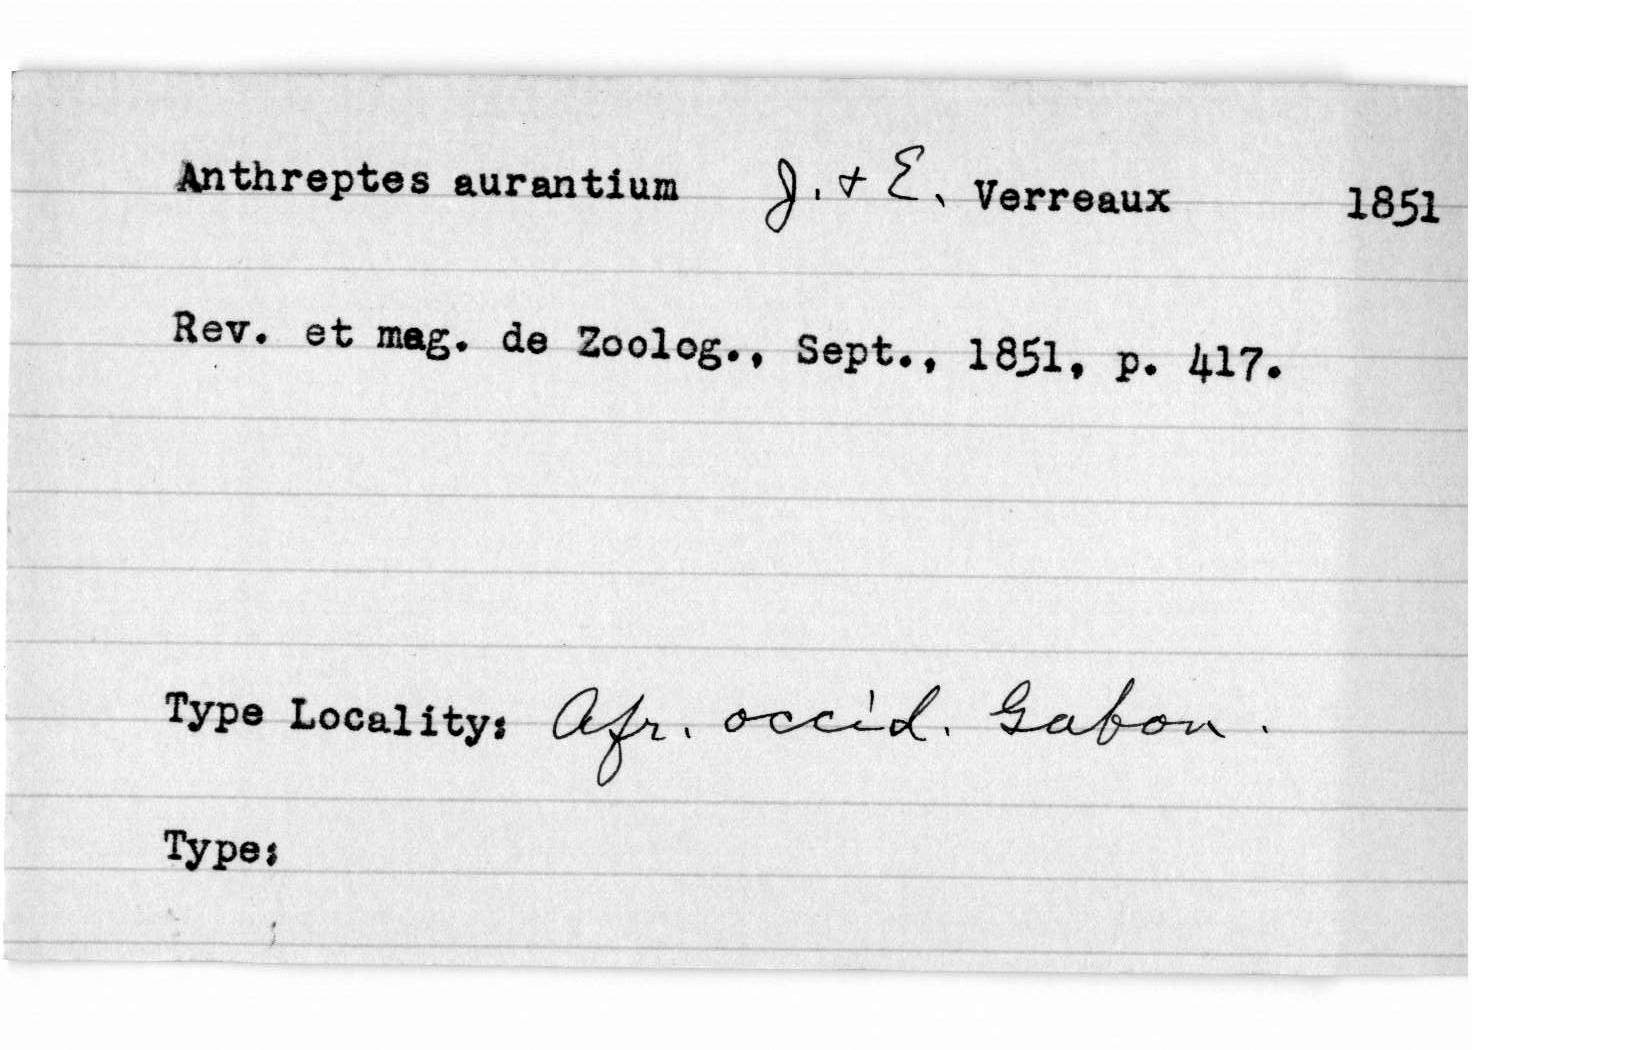 Anthreptes aurantium J. + E. Verreaux 1851
Rev. et mag. de Zoolog., Sept., 1851, p. 417.
Type Locality: Afr. occid. Gabon.
Type: